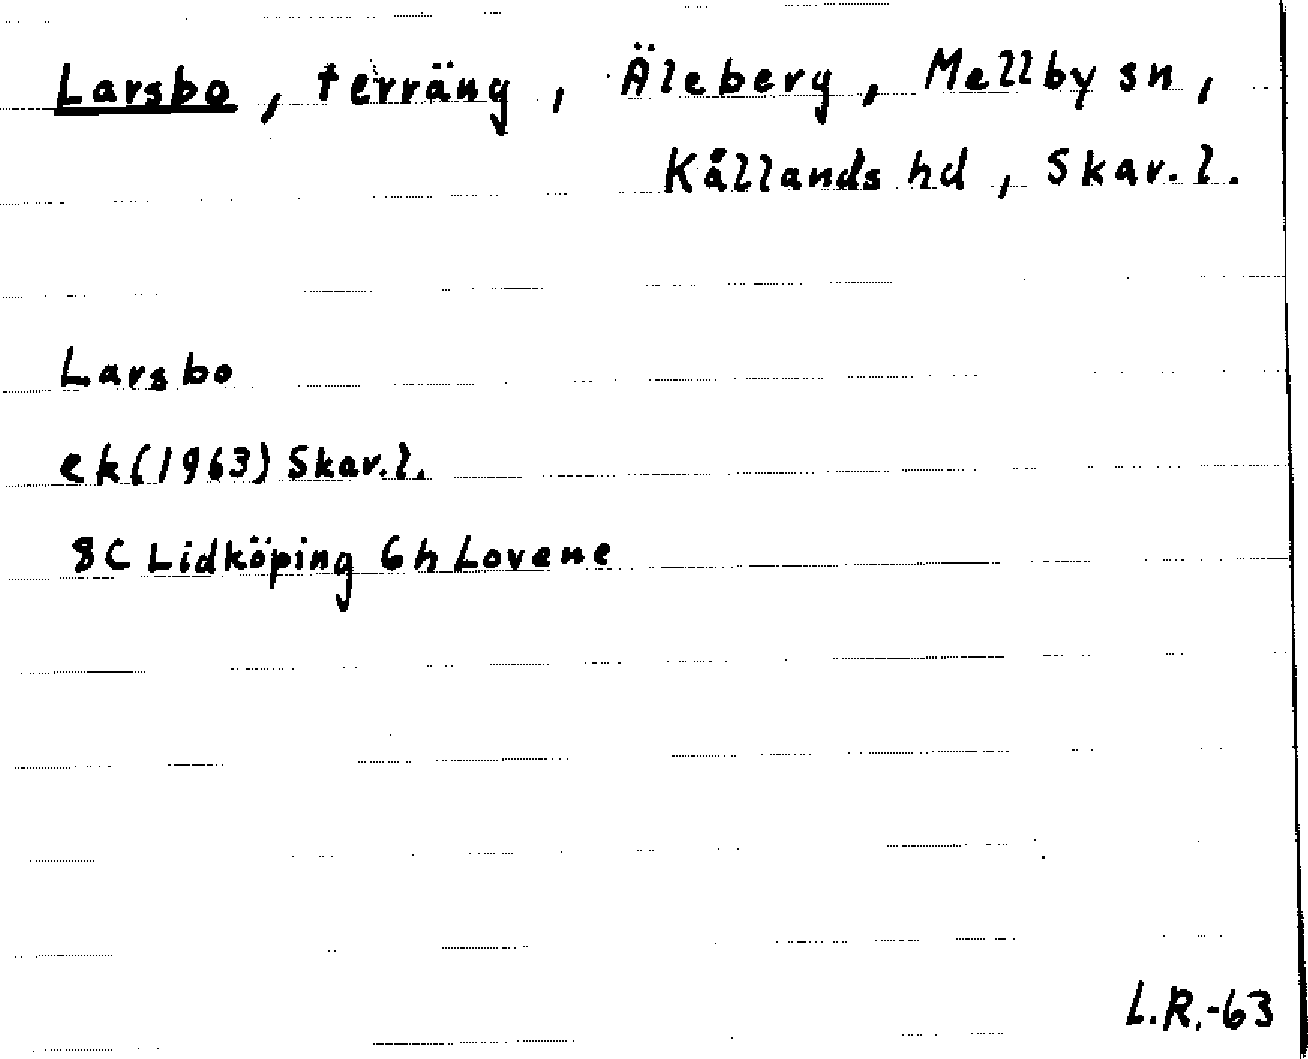 Larsbo, terräng, Äleberg, Mellby sn,
Kållands hd, Skar.l.
Larsbo
ek(1963) Skar.l.
8C Lidköping 6h Lovene
L.R.-63